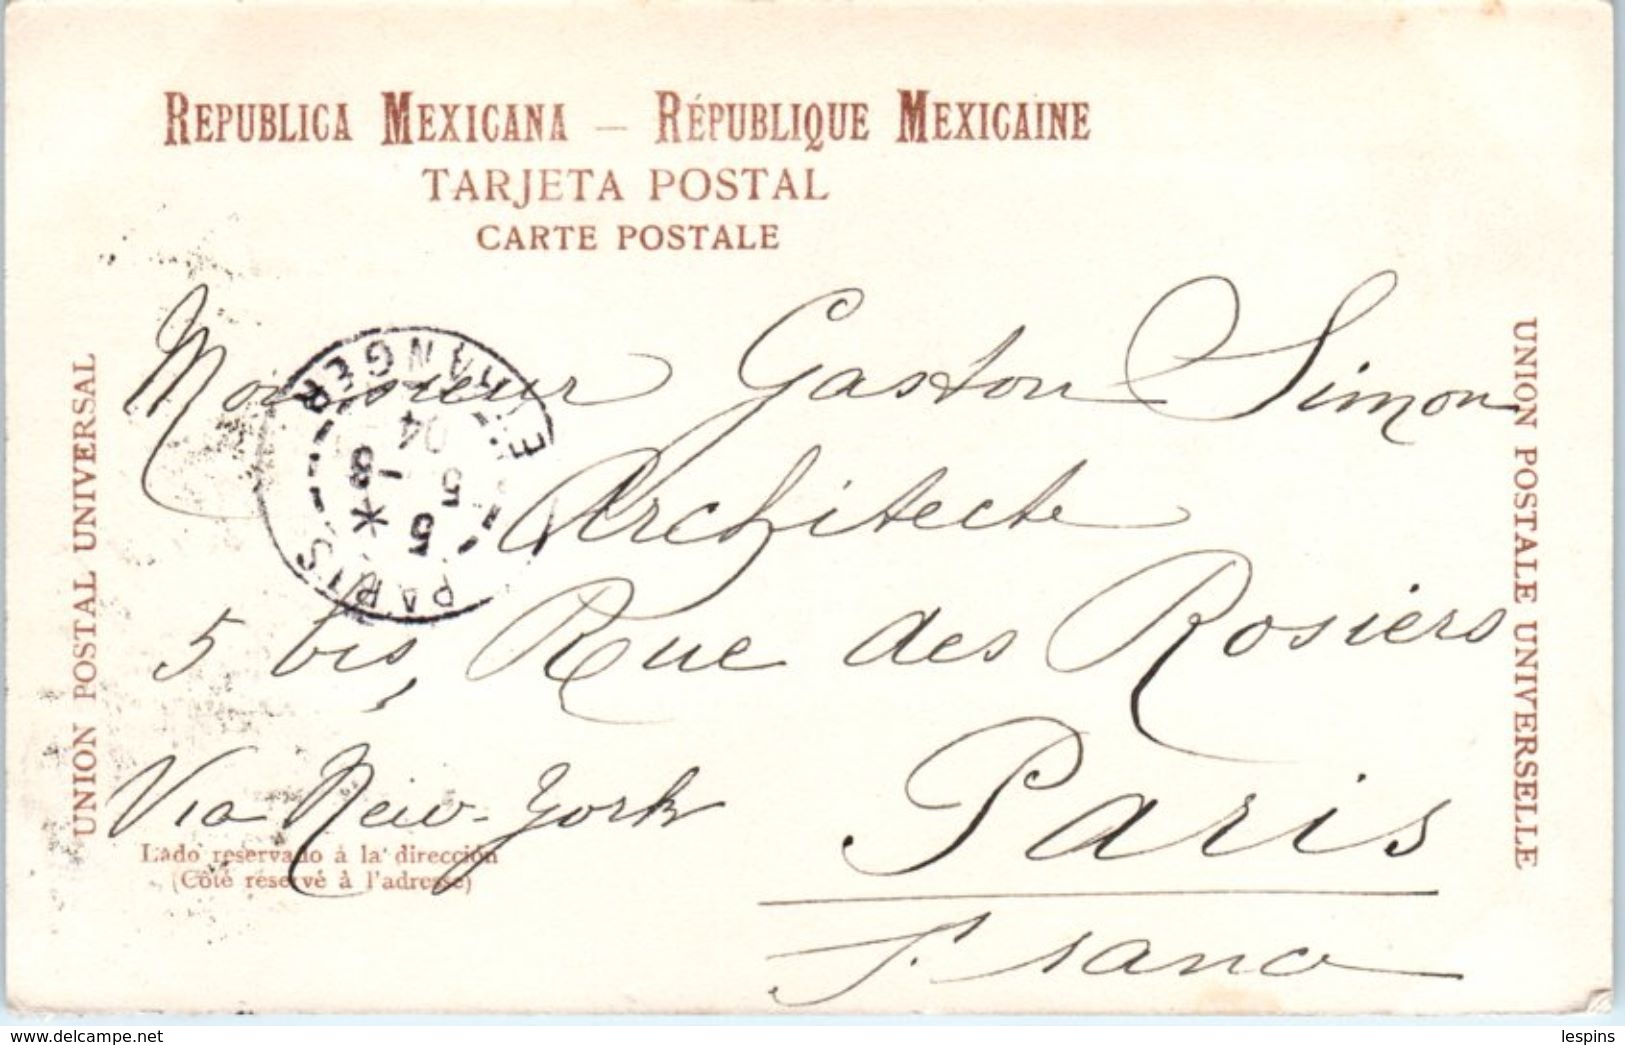 REPUBLICA MEXICANA — RÉPUBLIQUE MEXICAINE
TARJETA POSTAL
CARTE POSTALE
UNION POSTAL UNIVERSAL
UNION POSTALE UNIVERSELLE
Monsieur Gaston Simon
Architecte
5 bis, Rue des Rosiers
Paris
France
Via New-York
PARIS ETRANGER
5
* 8 5
04
Lado reservado á la dirección
(Côté réservé à l'adresse)
lespins
https://www.delcampe.net